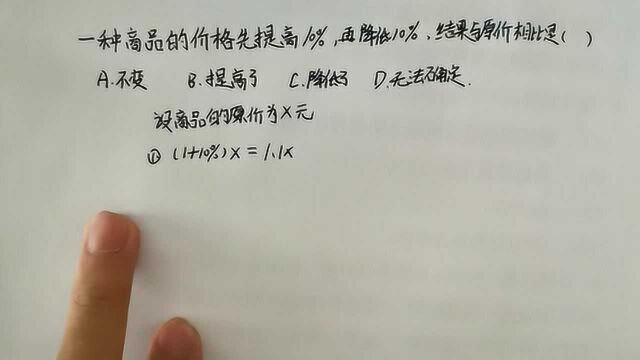 一种商品的价格先提高10%,再降低10%,结果与原价相比是( )
A.不变 B.提高了 C.降低了 D.无法确定.
设商品的原价为x元
① (1+10%)x=1.1x